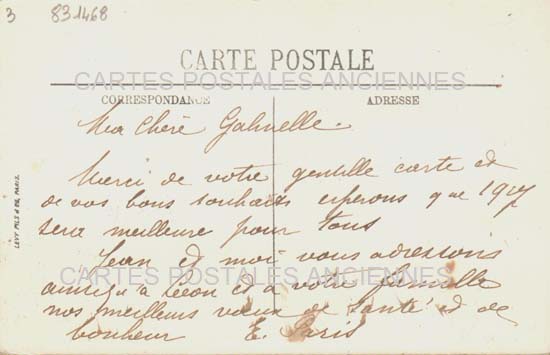 3 831468
CARTE POSTALE
CARTES POSTALES ANCIENNES
CORRESPONDANCE ADRESSE
Ma Chère Gabrielle.
Merci de votre gentille carte et
de vos bons souhaits esperons que 1917
sera meilleure pour tous
Jean et moi vous adressons
CARTES POSTALES ANCIENNES
ainsi qu'a Léon et à votre famille
nos meilleurs vœux de santé et de
bonheur E. Paris
LEVY FILS & Cie, PARIS.